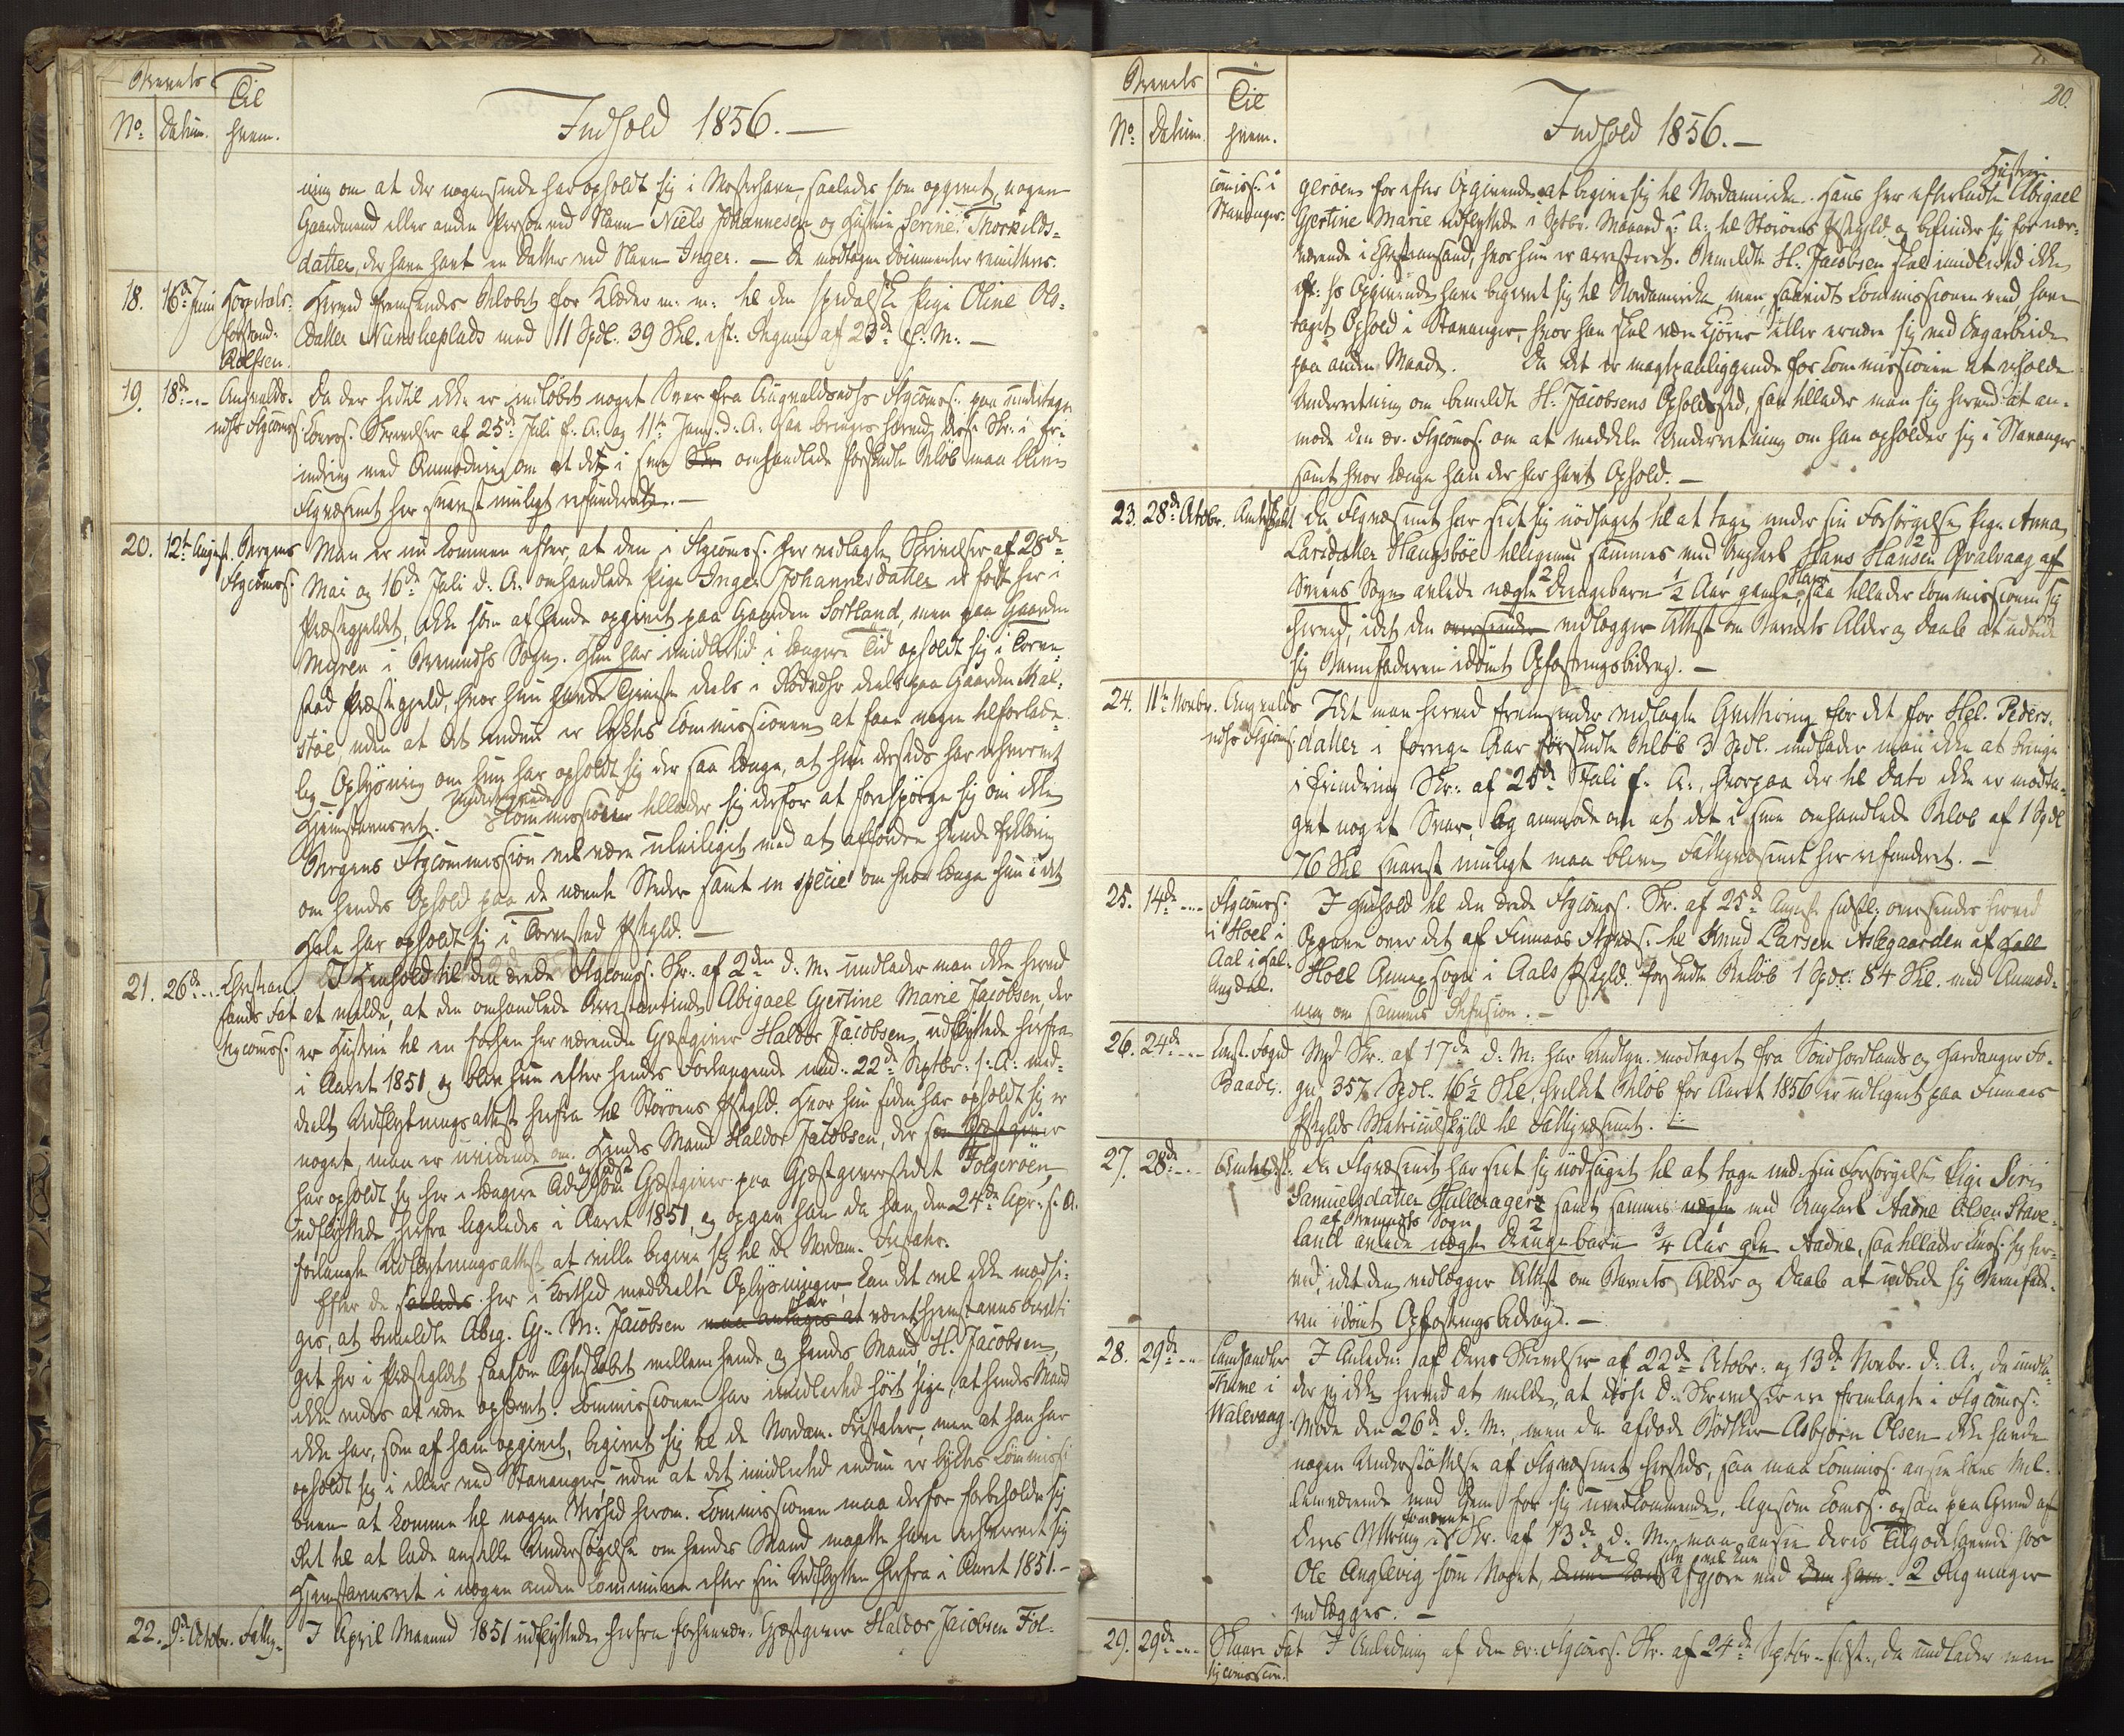 Brevets
No: Datum. Til hvem.
Indhold 1856.—
ning om at der nogensinde har opholdt sig i Mosterhavn, saaledes som opgivet, nogen
Gaardmand eller anden Person ved Navn Niels Johannesen og Hustrue Serine Thorkilds-
datter, der have havt en Datter ved Navn Inger. — De modtagne Documenter remitteres.
18. 16de Juni Hospitals- forstand: Rolfsen.
Herved fremsendes Beløbet for Klæder m: m: til den spedalske Pige Oline Ols-
datter Nernsteplads med 11 Spd. 39 Skl. eft: Regning af 23de f: M:—
19. 18de -- Augvalds- næss Ftgcomss.
Da der hidtil ikke er indløbet noget Svar fra Augvaldsnæss Ftgcomss. paa undertegn.
Comss. Skrivelser af 25de Juli f. A. og 11te Janr. d. A. saa bringes herved disse Skr: i Er-
indring med Anmodning om at det i sine Skr. omhandlede forskudte Beløb maa blive
Ftgvæsenet her snarest muligt refunderet.—
20. 12te August. Bergens Ftgcomss.
Man er nu kommen efter, at den i Ftgcomss. her vedlagte Skrivelser af 28de
Mai og 16de Juli d. A. omhandlede Pige Inger Johannesdatter er født her i
Præstegjeldet, ikke som af hende opgivet paa Gaarden Sortland, men paa Gaarden
Myren i Bremnæss Sogn. Hun har imidlertid i længere Tid opholdt sig i Torve-
stad Præstegjeld, hvor hun havde Tjeneste deels i Rødvær deels paa Gaarden Kal-
støe uden at det endnu er lykkets Commissionen at faae nogen tilforlade-
lig Oplysning om hun har opholdt sig der saa længe, at hun dersteds har erhvervet
Hjemstavnsret. Undertegnede Commission tillader sig derfor at forespørge sig om ikke
Bergens Ftgcommission vil være uleiliget med at affordre hende Erklæring
om hendes Ophold paa de nævnte Steder samt in specie om hvor længe hun i det
Hele har opholdt sig i Torvestad Pstgld.—
21. 26de -- Christian- sands Fat- tigcomss.
I Henhold til den ærede Ftgcomss. Skr. af 2den d. M. undlader man ikke herved
at melde, at den omhandlede Arrestantinde Abigael Gjertine Marie Jacobsen, der
er Hustrue til en forhen her værende Gjæstgiver Haldor Jacobsen, udflyttede herfra
i Aaret 1851 og blev hun efter hendes Forlangende und. 22de Septbr. s. A. med-
deelt Udflytningsattest herfra til Störens Pstgld. Hvor hun siden har opholdt sig er
noget, man er uvidende om. Hendes Mand Haldor Jacobsen, der som Gjæstgiver
har opholdt sig her i længere Tid, og sidst som Gjæstgiver paa Gjæstgiverstedet Folgerøen,
udflyttede herfra ligeledes i Aaret 1851, og opgav han da han den 24de Apr. s. A.
forlangte Udflytningsattest at ville begive sig til de Nordam. Fristater.
Efter de saaledes her i Korthed meddeelte Oplysninger, kan det vel ikke modsi-
ges, at bemeldte Abig. Gj. M. Jacobsen maa antages at har været hjemstavnsberetti-
get her i Præstegjeldet saasom Ægteskabet mellem hende og hendes Mand, H. Jacobsen,
ikke vides at være ophævet. Commissionen har imidlertid hørt sige, at hendes Mand
ikke har, som af ham opgivet, begivet sig til de Nordam. Fristater, men at han har
opholdt sig i eller ved Stavanger, uden at det imidlertid endnu er lykkets Commissi-
onen at komme til nogen Vished herom. Commissionen maa derfor forbeholde sig
Ret til at lade anstille Undersøgelse om hendes Mand maatte have erhvervet sig
Hjemstavnsret i nogen anden Commune efter sin Udflytten herfra i Aaret 1851.—
22. 9de Octobr. Fattig-
I April Maaned 1851 udflyttede herfra forhenvær. Gjæstgiver Haldor Jacobsen Fol-
20.
Brevets
No: Datum. Til hvem.
Indhold 1856.—
comiss: i Stavanger.
gerøen for efter Opgivende at begive sig til Nordamerika. Hans her efterladte Hustrue Abigael
Gjertine Marie udflyttede i Sptbr. Maaned s. A. til Störens Pstgld. og befinder sig for nær-
værende i Christiansand, hvor hun er arresteret. Bemeldte H. Jacobsen skal imidlertid ikke
eft: sit Opgivende have begivet sig til Nordamerika, men saavidt Commissionen veed, have
taget Ophold i Stavanger, hvor han skal være Kjører eller ernære sig ved Dagarbeide
paa anden Maade. Da det er magtpaaliggende for Commissionen at erholde
Underretning om bemeldte H. Jacobsens Opholdssted, saa tillader man sig herved at an-
mode den ær. Ftgcomss. om at meddele Underretning om han opholder sig i Stavanger
samt hvor længe han der har havt Ophold.—
23. 28de Octobr. Amtskabet
Da Ftgvæsenet har seet sig nødsaget til at tage under sin Forsørgelse Pige Anna
Larsdatter Haugsbøe tilligemed sammes med Ungkarl Hans Hansen Qvalvaag af
Sveens Sogn avlede uægte Drengebarn 1/2 Aar gammel, Hans saa tillader Commissionen sig
herved, idet den oversender vedlægger Attest om Barnets Alder og Daab at udbede
sig Barnefaderen idømt Opfostringsbidrag.—
24. 11te Novbr. Augvalds- næss Ftgcoms.
Idet man herved fremsender vedlagte Qvittering for det for Hel. Peders-
datter i forrige Aar forskudte Beløb 3 Spd. undlader man ikke at bringe
i Erindring Skr: af 25de Juli f. A., hvorpaa der til Dato ikke er modta-
get noget Svar, og anmode om at det i sine omhandlede Beløb af 1 Spd
76 Skl snarest muligt maa blive Fattigvæsenet her refunderet.—
25. 14de --- Ftgcomss. i Hoel i Aal i Hal- ingdal.
I Henhold til den ærede Ftgcomss. Skr. af 25de August sidstl. oversendes herved
Opgave over det af Finnaas Ftgvæs. til Knud Larsen Aslegaarden af
Hoel Annexsogn i Aals Pstgld. forskudte Beløb 1 Spd: 84 Skl. med Anmod-
ning om sammes Refusion.—
26. 24de --- Const. Foged Baade.
Med Skr. af 17de d. M. har Undtgn. modtaget fra Søndhordlands og Hardanger Fo-
gn. 357 Spd. 16 1/2 Skl, hvilket Beløb for Aaret 1856 er udlignet paa Finnaas
Pstglds Matriculskyld til Fattigvæsenet.—
27. 28de --- Amtsskr.
Da Ftgvæsenet har seet sig nødsaget til at tage und. sin Forsørgelse Pige Siri
Samuelsdatter Hallerager samt sammes uægte med Ungkarl Aadne Olsen Stave-
land af Bremnæss Sogn avlede uægte Drengebarn 3/4 Aar gl. Aadne, saa tillader Comss. sig her-
ved, idet den vedlægger Attest om Barnets Alder og Daab at udbede sig Barnefade-
ren idømt Opfostringsbidrag.—
28. 29de --- Landhandler Thume i Walevaag
I Anledn: af Deres Skrivelser af 22de Octobr. og 13de Novbr. d. A., da undla-
der jeg ikke herved at melde, at disse D. Skrivelser ere fremlagte i Ftgcomss.
Møde den 26de d. M., men da afdøde Bødker Asbjørn Olsen ikke havde
nogen Understøttelse af Ftgvæsenet hersteds, saa maa Commss. ansee hans Mel-
lemværende med Dem for sig uvedkommende, ligesom Comss. ogsaa paa Grund af
Deres Yttring i fornævnte Skr. af 13de d. M. maa ansee Deres Tilgodehavende hos
Ole Anglevig som Noget, denne kan De selv vel kan afgjøre med Dem ham. 2 Regninger
vedlægges.—
29. 29de --- Skaare Fat- tigcomission.
I Anledning af den ær. Ftgcomss. Skr. af 24de Septbr. sidstl., da undlader man